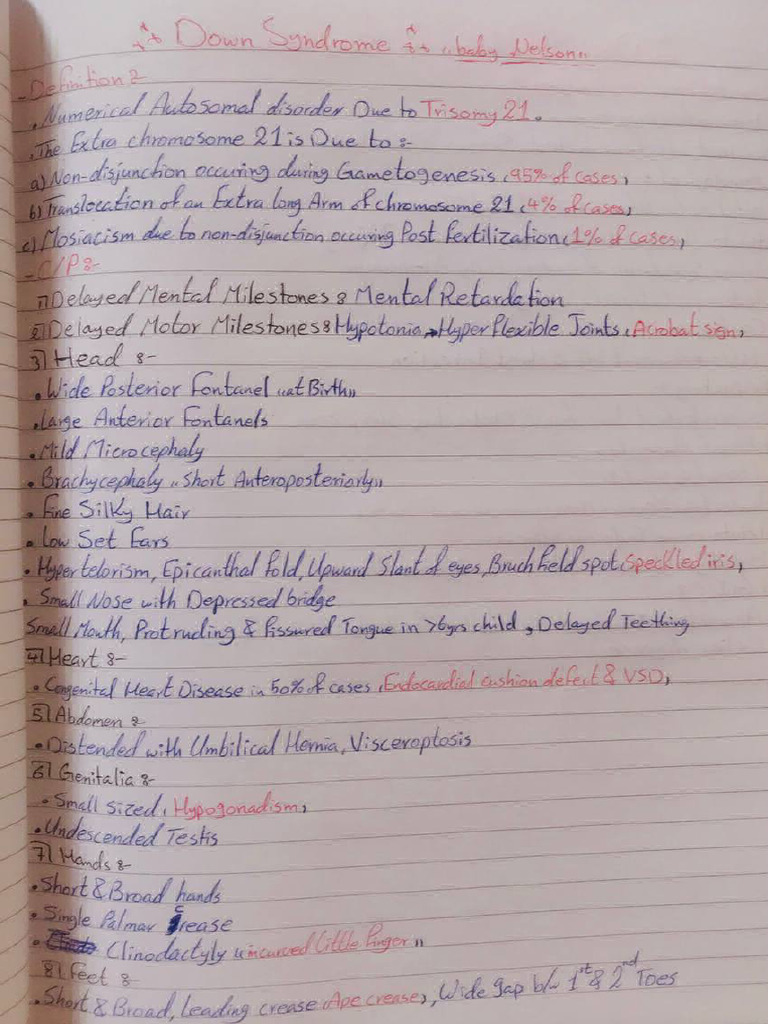 ** Down Syndrome ** "baby Nelson"
- Definition :-
. Numerical Autosomal disorder Due to Trisomy 21.
. The Extra chromosome 21 is Due to :-
a) Non-disjunction occuring during Gametogenesis (95% of cases)
b) Translocation of an Extra long Arm of chromosome 21 (4% of cases)
c) Mosiacism due to non-disjunction occuring Post fertilization (1% of cases)
- C/P :-
1] Delayed Mental Milestones & Mental Retardation
2] Delayed Motor Milestones & Hypotonia → Hyper Flexible Joints (Acrobat sign)
3] Head :-
. Wide Posterior Fontanel "at Birth"
. Large Anterior Fontanels
. Mild Microcephaly
. Brachycephaly "Short Anteroposteriorly"
. Fine Silky Hair
. Low Set Ears
. Hypertelorism, Epicanthal fold, Upward Slant of eyes, Bruchfield spot (Speckled iris)
. Small Nose with Depressed bridge
Small Mouth, Protruding & Fissured Tongue in >6yrs child, Delayed Teething
4] Heart :-
. Congenital Heart Disease in 50% of cases (Endocardial cushion defect & VSD)
5] Abdomen :-
. Distended with Umbilical Hernia, Visceroptosis
6] Genitalia :-
. Small sized (Hypogonadism)
. Undescended Testis
7] Hands :-
. Short & Broad hands
. Single Palmar Crease
. Clinodactyly "incurved little finger"
8] Feet :-
. Short & Broad, Leading crease (Ape crease), Wide gap b/w 1st & 2nd Toes